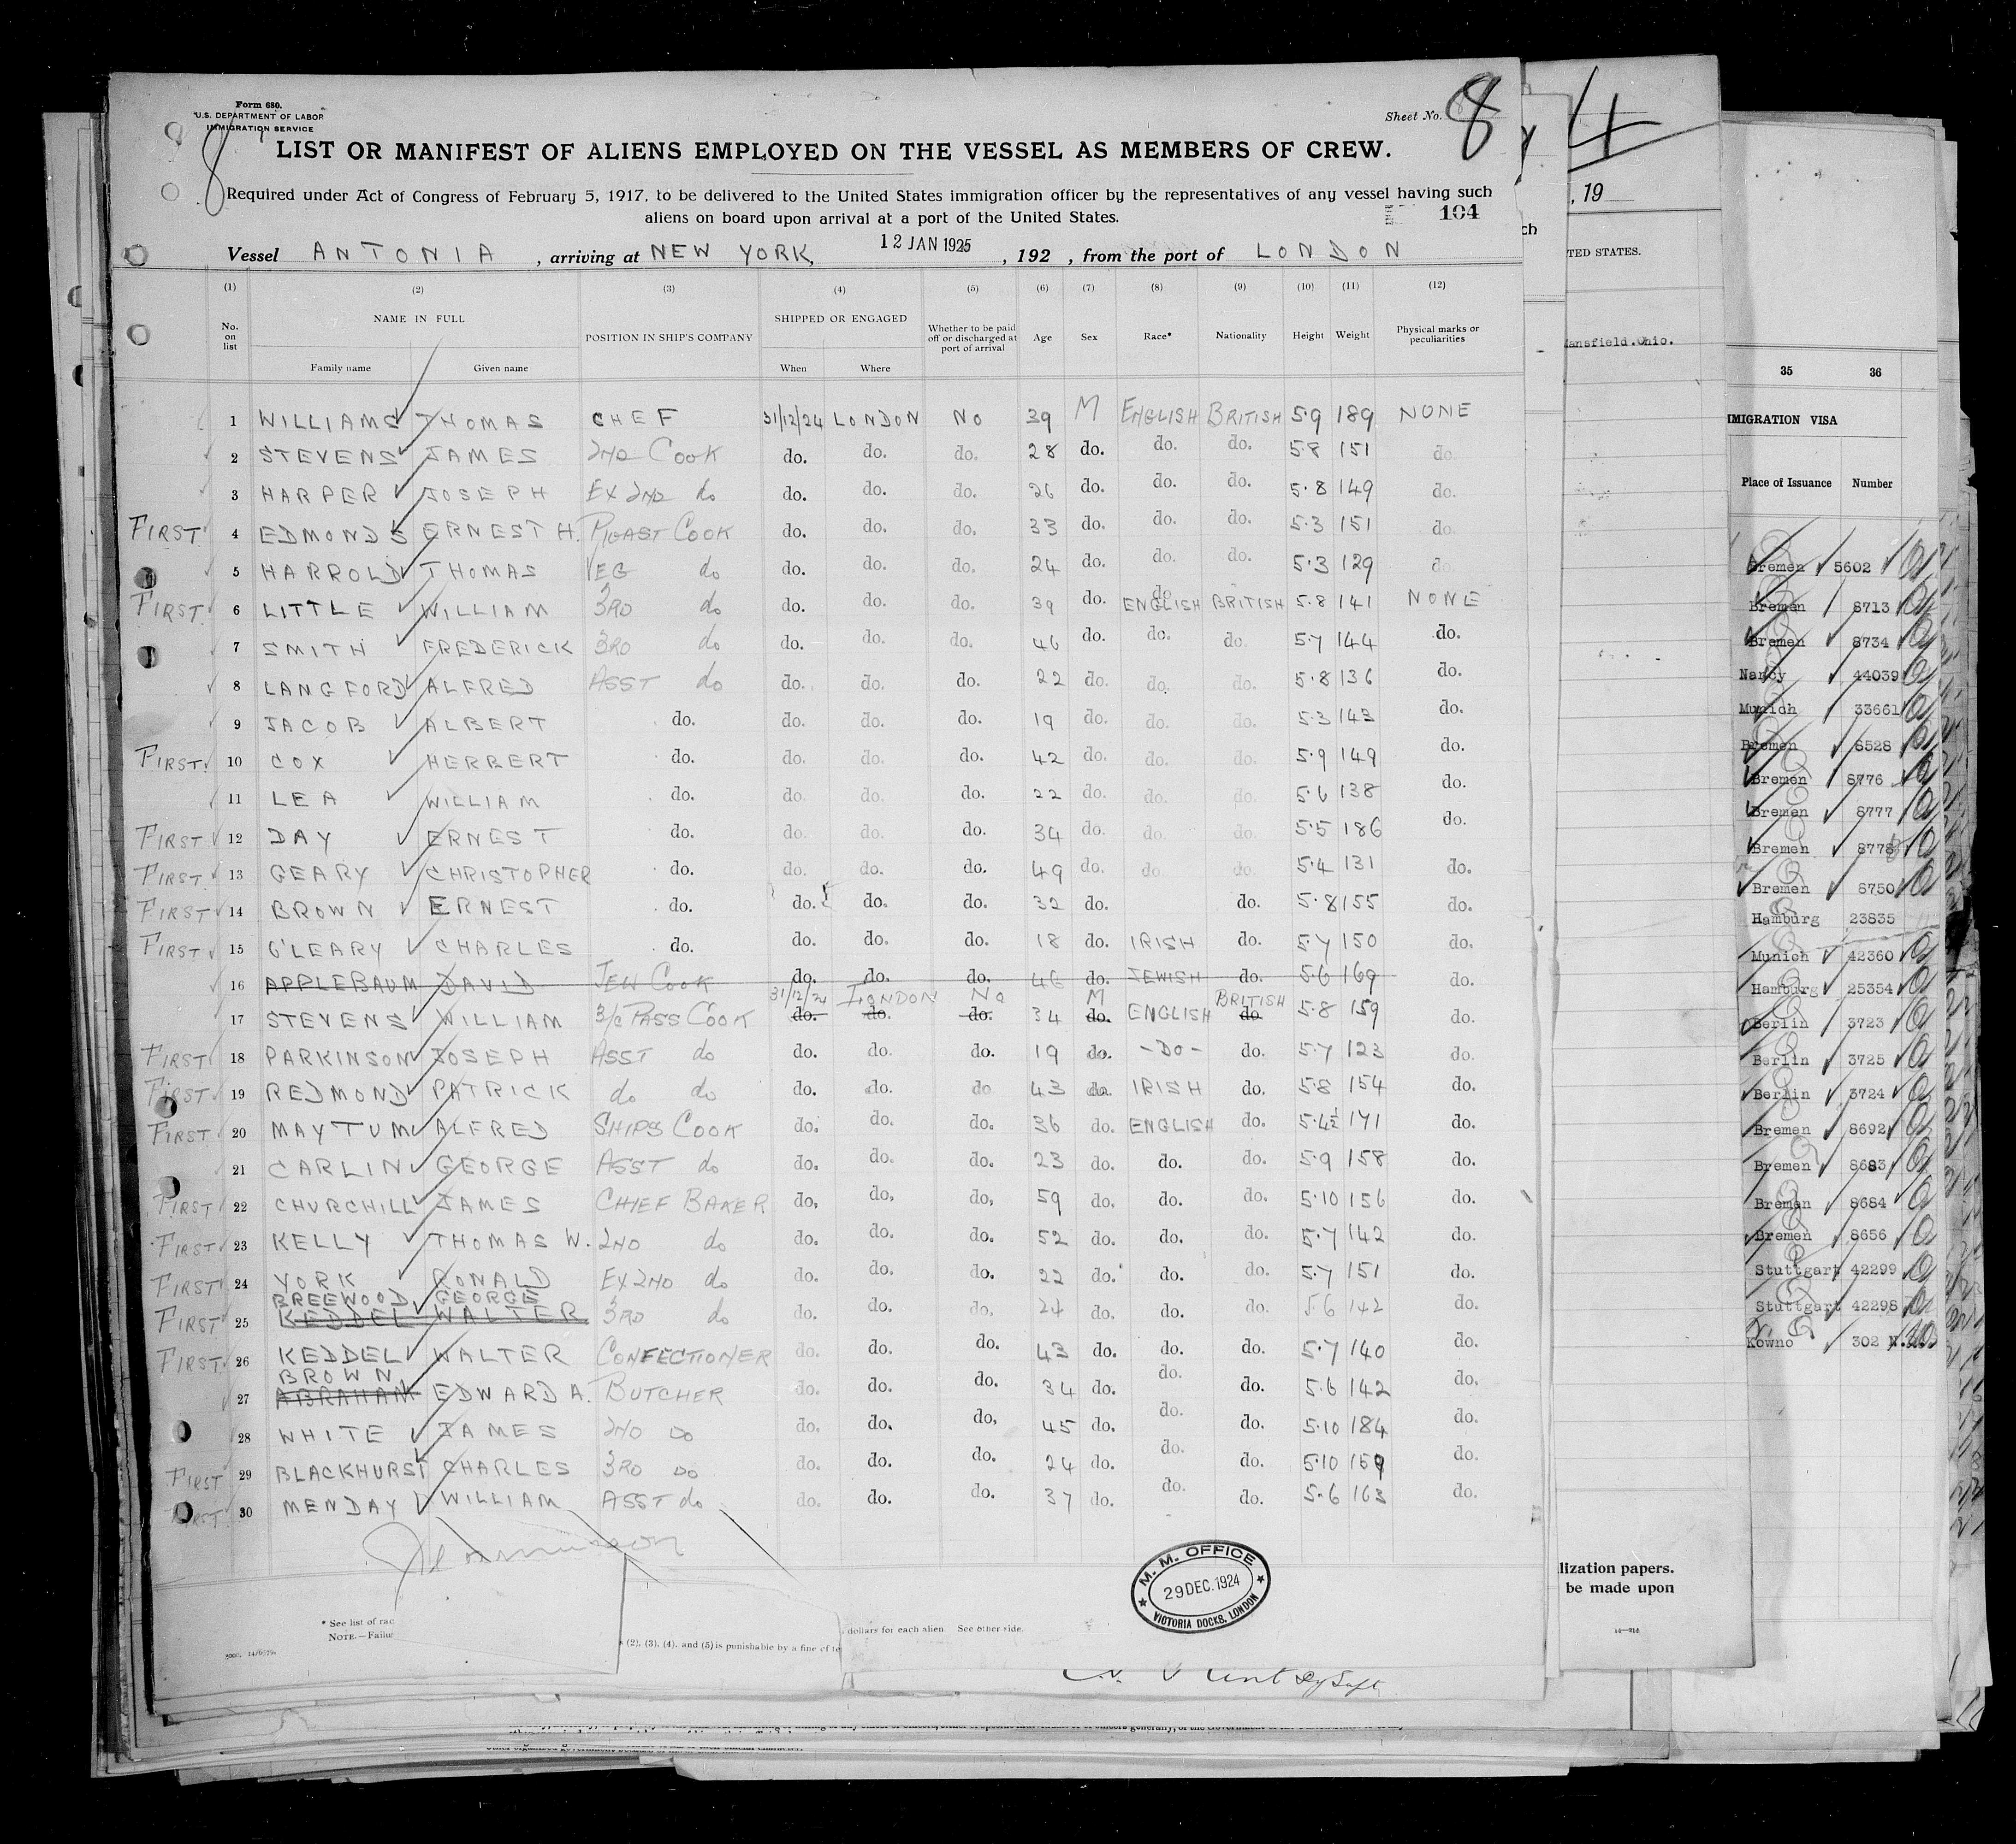 Form 680.
U.S. DEPARTMENT OF LABOR
IMMIGRATION SERVICE
Sheet No. 8
8
LIST OR MANIFEST OF ALIENS EMPLOYED ON THE VESSEL AS MEMBERS OF CREW.
Required under Act of Congress of February 5, 1917, to be delivered to the United States immigration officer by the representatives of any vessel having such
aliens on board upon arrival at a port of the United States.
104
Vessel ANTONIA, arriving at NEW YORK, 12 JAN 1925, 192 , from the port of LONDON
(1) (2) (3) (4) (5) (6) (7) (8) (9) (10) (11) (12)
No. on list NAME IN FULL POSITION IN SHIP'S COMPANY SHIPPED OR ENGAGED Whether to be paid off or discharged at port of arrival Age Sex Race* Nationality Height Weight Physical marks or peculiarities
Family name Given name When Where
1 WILLIAMS THOMAS CHEF 31/12/24 LONDON NO 39 M ENGLISH BRITISH 5.9 189 NONE
2 STEVENS JAMES 2ND COOK do. do. do. 28 do. do. do. 5.8 151 do.
3 HARPER JOSEPH EX 2ND do do. do. do. 26 do. do. do. 5.8 149 do.
FIRST 4 EDMONDS ERNEST H. ROAST COOK do. do. do. 33 do. do. do. 5.3 151 do.
5 HARROLD THOMAS VEG do do. do. do. 24 do. do. do. 5.3 129 do.
FIRST 6 LITTLE WILLIAM 3RD do do. do. do. 39 do. do. ENGLISH BRITISH 5.8 141 NONE
7 SMITH FREDERICK 3RD do do. do. do. 46 do. do. do. 5.7 144 do.
8 LANGFORD ALFRED ASST do do. do. do. 22 do. do. do. 5.8 136 do.
9 JACOB ALBERT do. do. do. do. 19 do. do. do. 5.3 143 do.
FIRST 10 COX HERBERT do. do. do. do. 42 do. do. do. 5.9 149 do.
11 LEA WILLIAM do. do. do. do. 22 do. do. do. 5.6 138 do.
FIRST 12 DAY ERNEST do. do. do. do. 34 do. do. do. 5.5 186 do.
FIRST 13 GEARY CHRISTOPHER do. do. do. do. 49 do. do. do. 5.4 131 do.
FIRST 14 BROWN ERNEST do. do. do. do. 32 do. do. 5.8 155 do.
FIRST 15 O'LEARY CHARLES do. do. do. do. 18 do. IRISH do. 5.7 150 do.
16 APPLEBAUM DAVID JEW COOK do. do. do. 46 do. JEWISH do. 5.6 169 do.
31/12/24 LONDON NO M BRITISH
17 STEVENS WILLIAM 3/C PASS COOK do. do. do. 34 do. ENGLISH do. 5.8 159 do.
FIRST 18 PARKINSON JOSEPH ASST do do. do. do. 19 do. -DO- do. 5.7 123 do.
FIRST 19 REDMOND PATRICK do do do. do. do 43 do. IRISH do. 5.8 154 do.
FIRST 20 MAYTUM ALFRED SHIPS COOK do. do. do. 36 do. ENGLISH do. 5.4½ 171 do.
21 CARLIN GEORGE ASST do do. do. do. 23 do. do. do. 5.9 158 do.
FIRST 22 CHURCHILL JAMES CHIEF BAKER do. do. do. 59 do. do. do. 5.10 156 do.
FIRST 23 KELLY THOMAS W. 2ND do do. do. do. 52 do. do. do. 5.7 142 do.
FIRST 24 YORK RONALD EX 2ND do do. do. do. 22 do. do. do. 5.7 151 do.
BREEWOOD GEORGE
FIRST 25 KEDDEL WALTER 3RD do do. do. do. 24 do. do. do. 5.6 142 do.
FIRST 26 KEDDEL WALTER CONFECTIONER do. do. do. 43 do. do. do. 5.7 140 do.
BROWN
27 ABRAHAM EDWARD A. BUTCHER do. do. do. 34 do. do. do. 5.6 142 do.
28 WHITE JAMES 2ND DO do. do. do. 45 do. do. do. 5.10 184 do.
FIRST 29 BLACKHURST CHARLES 3RD DO do. do. do. 24 do. do. do. 5.10 159 do.
FIRST 30 MENDAY WILLIAM ASST do do. do. do. 37 do. do. do. 5.6 163 do.
M. M. OFFICE
29 DEC. 1924
VICTORIA DOCKS, LONDON
* See list of rac
NOTE.—Failu
(2), (3), (4), and (5) is punishable by a fine of te
dollars for each alien. See other side.
4
, 19
ch
TED STATES.
ansfield.Ohio.
lization papers.
be made upon
35 36
MMIGRATION VISA
Place of Issuance Number
Bremen 5602
Bremen 8713
Bremen 8734
Nancy 44039
Munich 33661
Bremen 8528
Bremen 8776
Bremen 8777
Bremen 8778
Bremen 8750
Hamburg 23835
Munich 42360
Hamburg 25354
Berlin 3723
Berlin 3725
Berlin 3724
Bremen 8692
Bremen 8683
Bremen 8684
Bremen 8656
Stuttgart 42299
Stuttgart 42298
Kowno 302